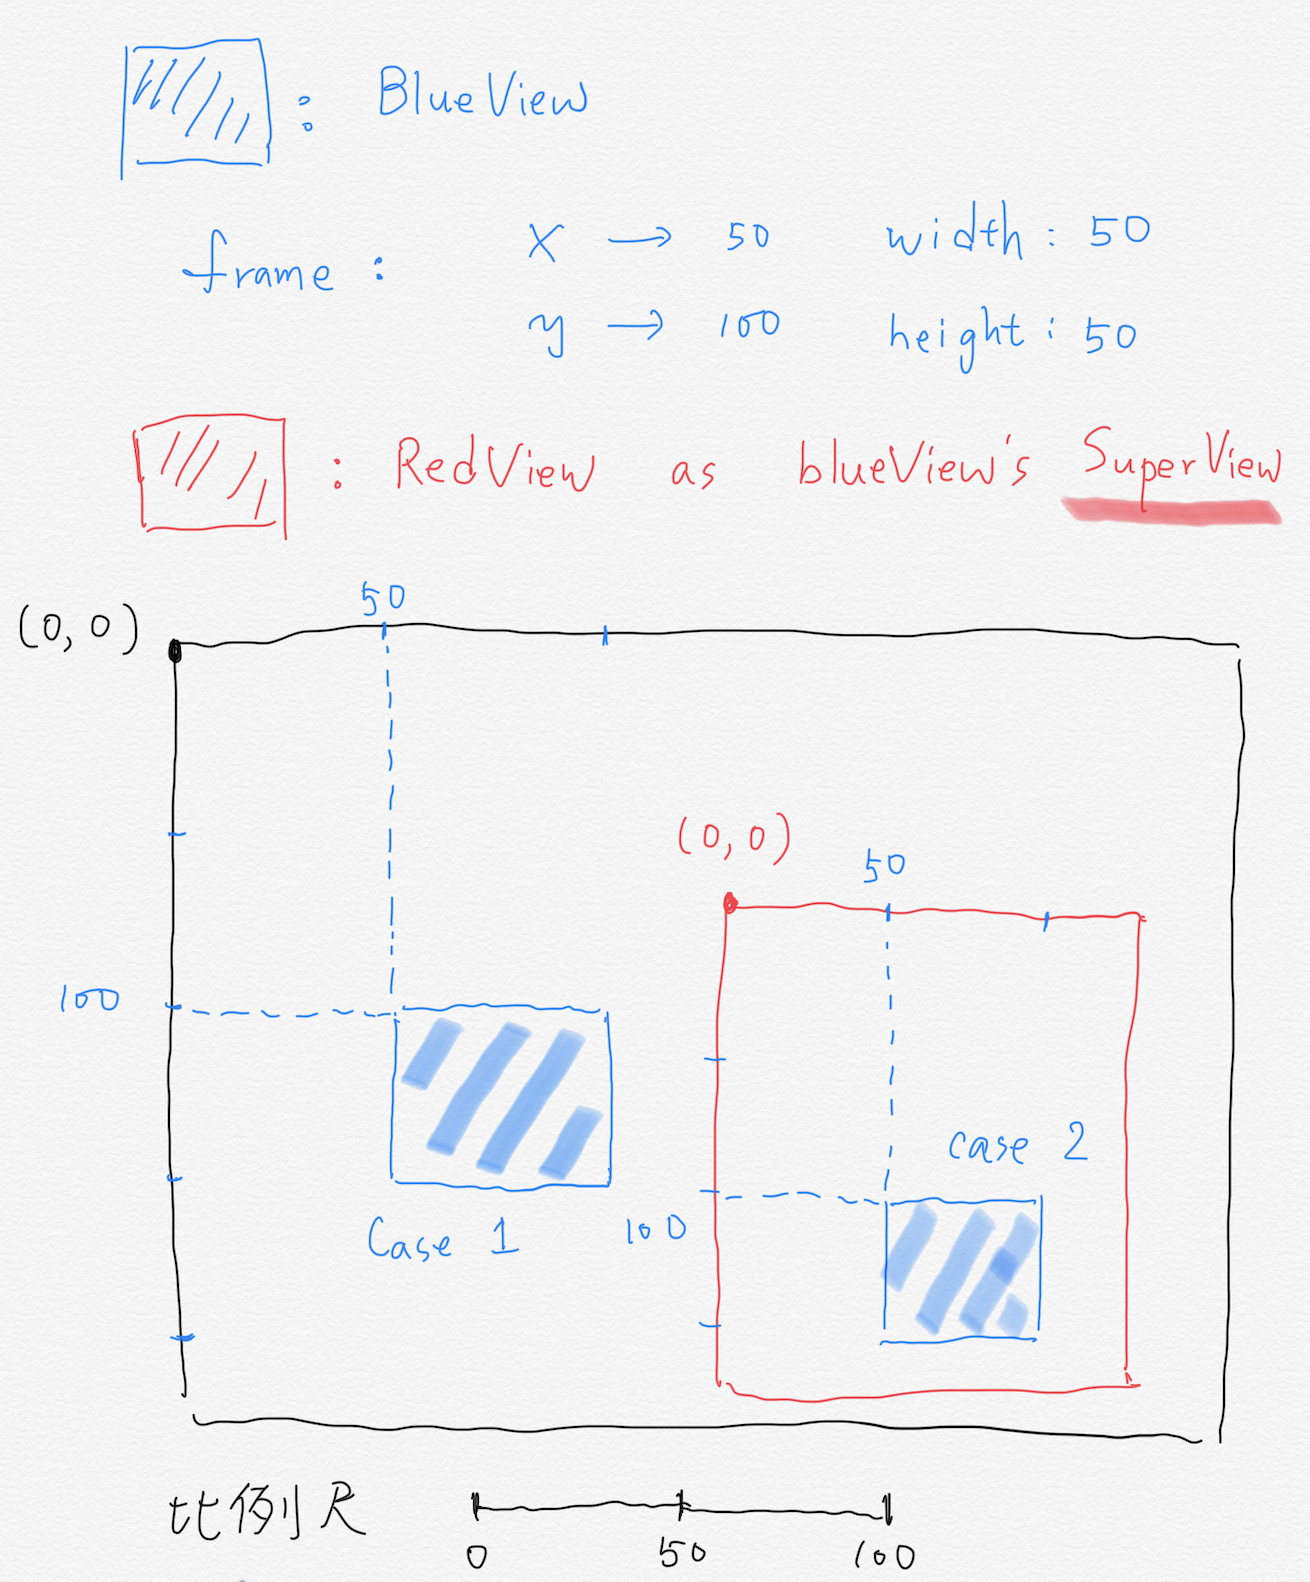 : BlueView
frame : x → 50 width : 50
y → 100 height : 50
: RedView as blueView's SuperView
50
(0, 0)
(0, 0)
50
100
case 2
Case 1
100
比例尺
0 50 100